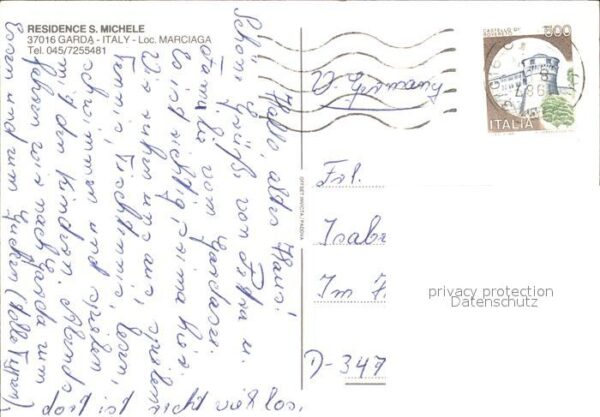 RESIDENCE S. MICHELE
37016 GARDA - ITALY - Loc. MARCIAGA
Tel. 045/7255481
Hallo, altes Haus!
Schöne Grüße von Petra u.
Familie vom Gardasee.
Es ist richtig prima hier.
Wir ruhn uns aus, spielen
Tennis, Tischtennis, lesen,
schwimmen und spielen
mit den Kindern. Abends
fahren wir nach Garda um
Essen und zum Gucken (tolle Typen)
dort ist nicht viel los.
CASTELLO DI
ROVERETO
500
ITALIA
1987
OFFSET INVICTA / PADOVA
Frl.
Isabe
Im F
D-347
privacy protection
Datenschutz